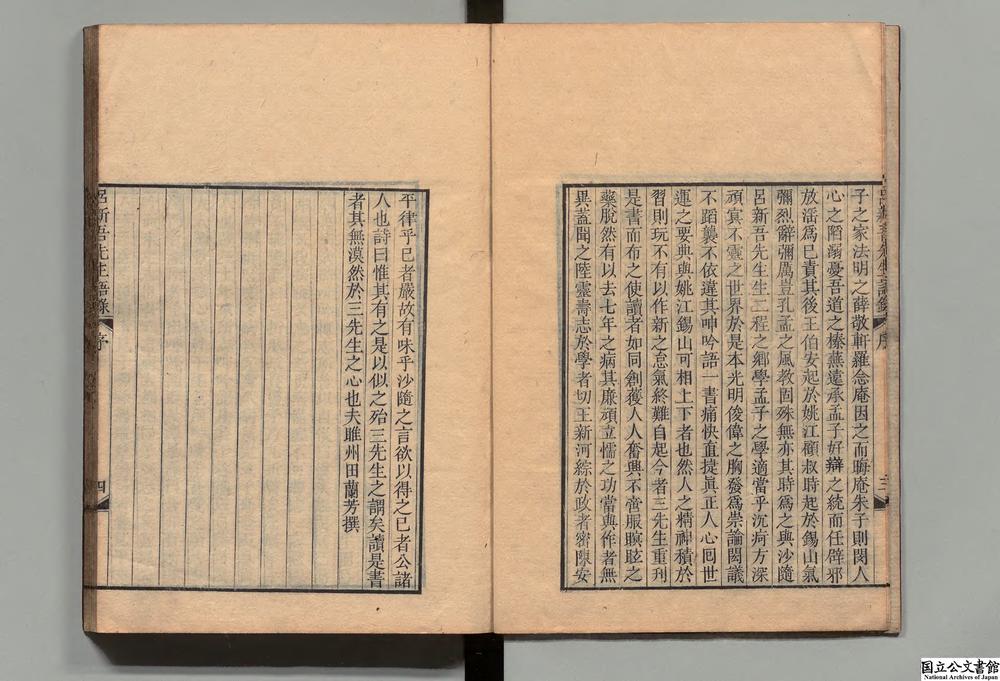 子之家法明之薛敬軒羅念庵因之而晦庵朱子則閔人
心之陷溺憂吾道之榛蕪遠承孟子好辯之統而任辟邪
放淫爲己責其後王伯安起於姚江顧叔時起於錫山氣
彌烈辭彌厲豈孔孟之風教固殊無亦其時爲之與沙隨
呂新吾先生生二程之鄉學孟子之學適當乎沉疴方深
頑冥不靈之世界於是本光明俊偉之胸發爲崇論閎議
不蹈襲不依違其呻吟語一書痛快直捷眞正人心囘世
運之要典與姚江錫山可相上下者也然人之精神積於
習則玩不有以作新之怠氣終難自起今者三先生重刋
是書而布之使讀者如同創獲人人奮興不啻服瞑眩之
藥脫然有以去七年之病其廉頑立懦之功當與作者無
異蓋聞之陸靈壽志於學者切王新河綜於政者密陳安
序
三
平律乎已者嚴故有味乎沙隨之言欲以得之已者公諸
人也詩曰惟其有之是以似之殆三先生之謂矣讀是書
者其無漠然於三先生之心也夫睢州田蘭芳撰
呂新吾先生語錄
序
四
国立公文書館
National Archives of Japan